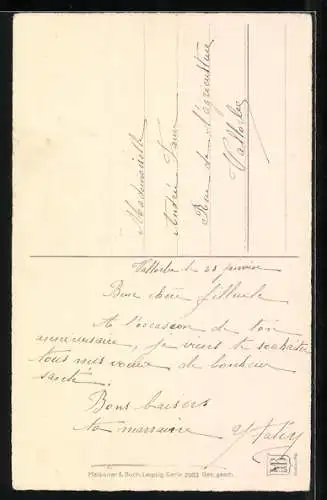 Mademoiselle
Andrée Faure
Rue de l'agriculture
Vallorbe
Vallorbe le 21 janvier
Bien chère filleule
A l'occasion de ton
anniversaire, je viens te souhaiter
tous mes voeux de bonheur
santé.
Bons baisers
ta marraine
Meissner & Buch, Leipzig. Serie 2903 Ges. gesch.